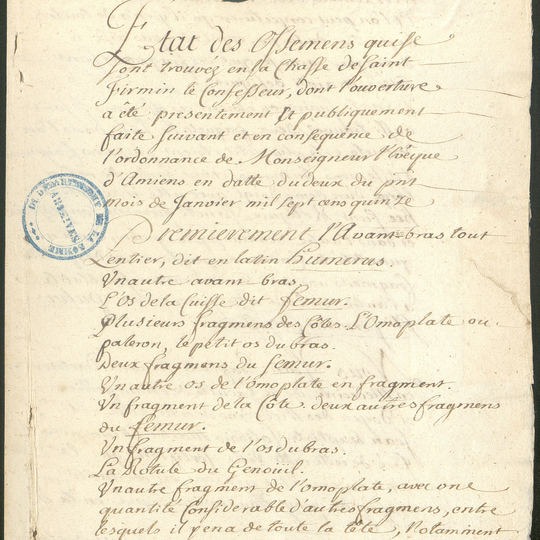 Etat des Ossemens qui se
sont trouvéz en la Chasse de Saint
Firmin le Confesseur, dont l'ouverture
a été presentement Et publiquement
faite suivant et en consequence de
l'ordonnance de Monseigneur l'Evêque
d'Amiens en datte du deux du pnt
mois de Janvier mil sept cens quinze
Premierement l'Avant=bras tout
Entier, dit en latin humerus.
Un autre avant-bras.
L'os de la Cuisse dit femur.
Plusieurs fragmens des Côtes. L'Omoplate ou
paleron, le petit os du bras.
Deux fragmens du femur.
Un autre os de l'omoplate en fragment.
Un fragment de la Côte. deux autres fragmens
du femur.
Un fragment de l'os du bras.
La Rotule du Genoüil.
Un autre fragment de l'omoplate, avec une
quantité Considerable d'autres fragmens, entre
lesquels il y en a de toute la tête, Notamment
DU DÉPARTEMENT DE LA SOMME
ARCHIVES